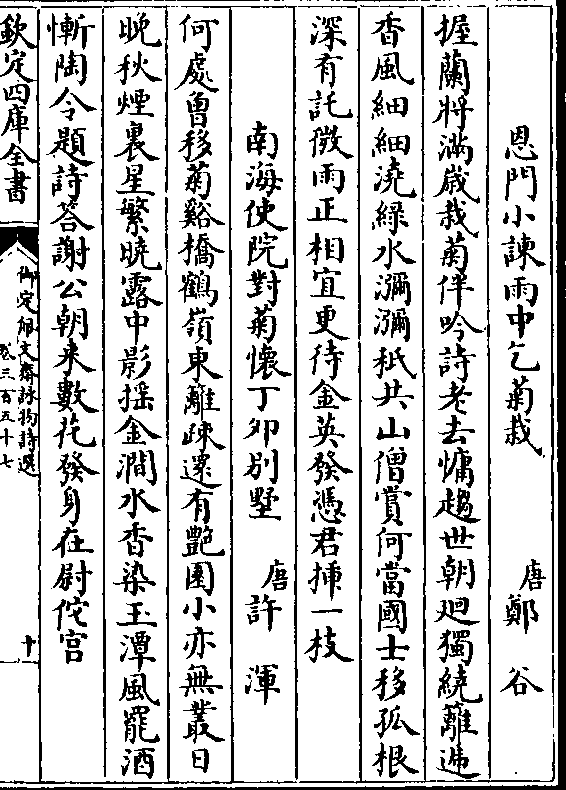 恩門小諫雨中乞菊栽　唐鄭谷
握蘭將滿歲栽菊伴吟詩老去慵趨世朝迴獨繞籬遞
香風細細澆綠水瀰瀰秖共山僧賞何當國士移孤根
深有託微雨正相宜更待金英發憑君揷一枝
南海使院對菊懷丁卯別墅　唐許渾
何處曾移菊谿橋鶴嶺東籬疎還有艶園小亦無叢日
晚秋煙裏星繁曉露中影揺金澗水香染玉潭風罷酒
慚陶令題詩答謝公朝来數花發身在尉佗宫
欽定四庫全書
御定佩文齋詠物詩選
卷三百五十七
十